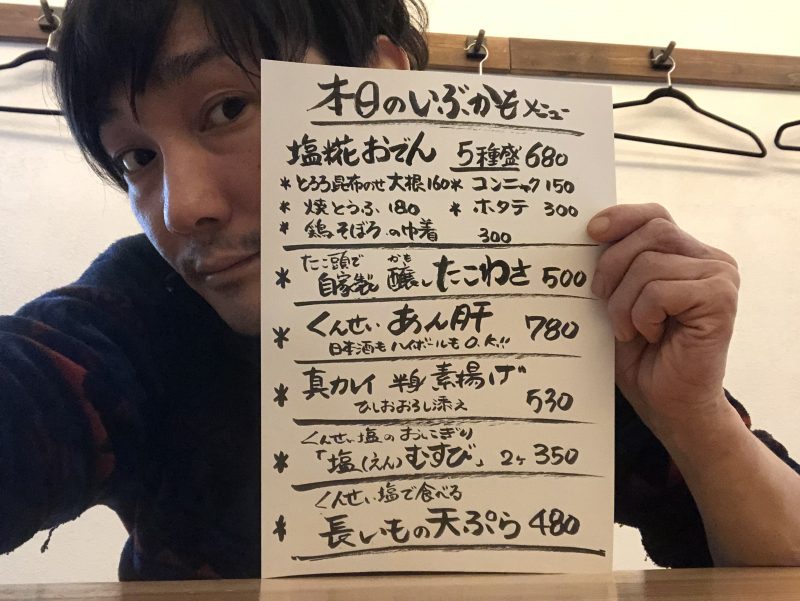 本日のいぶかもメニュー
塩糀おでん 5種盛 680
*とろろ昆布のせ大根160 * コンニャク 150
* 焼とうふ 180 * ホタテ 300
* 鶏そぼろの巾着 300
* たこ頭で自家製 醸し(かも) たこわさ 500
* くんせい あん肝 780
日本酒もハイボールもO.K.!!
* 真カレイ 半身 素揚げ 530
ひしおおろし添え
くんせい塩のおにぎり
* 「塩(えん)むすび」 2ヶ 350
くんせい塩で食べる
* 長いもの天ぷら 480